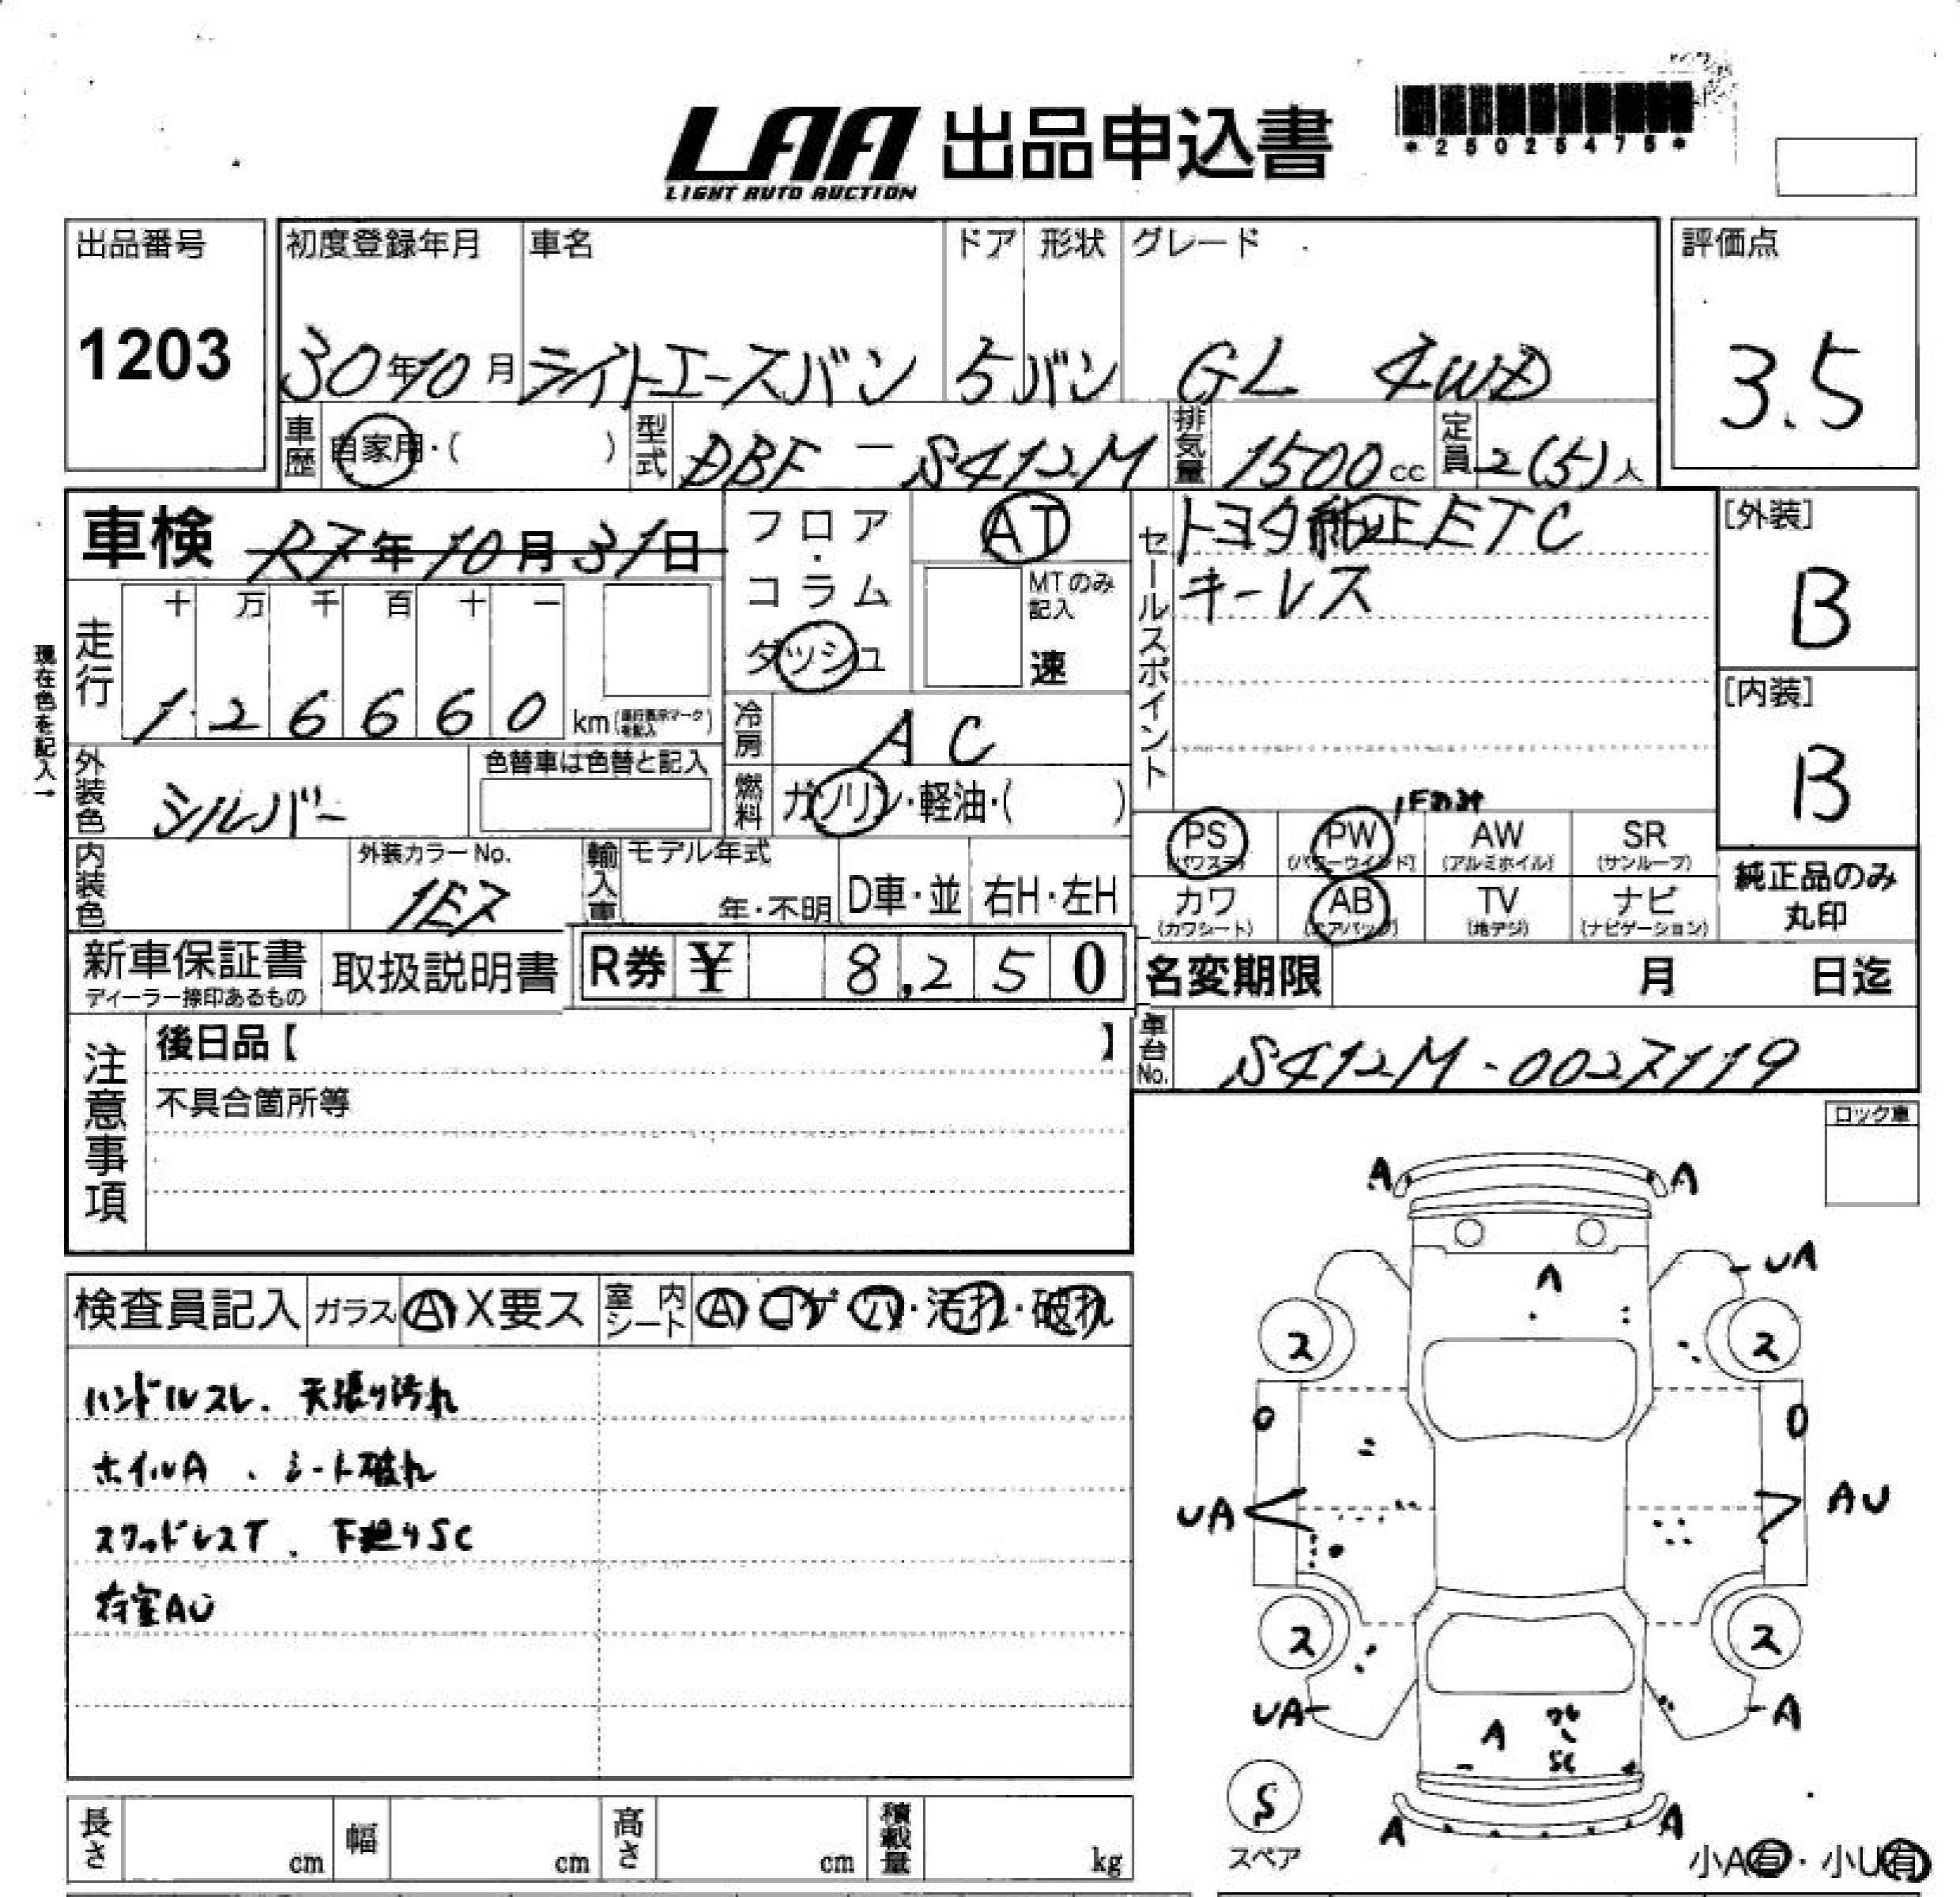 LAA 出品申込書
LIGHT AUTO AUCTION
*25025475*
出品番号
1203
初度登録年月 車名 ドア 形状 グレード
30年10月 ライトエースバン 5 バン GL 4WD
評価点
3.5
車歴 自家用・( ) 型式 DBF-S412M 排気量 1500cc 定員 2(5)人
車検 R7年10月31日
フロア・コラム
ダッシュ
AT
MTのみ記入
速
セールスポイント
トヨタ純正ETC
キーレス
[外装]
B
[内装]
B
現在色を記入→
走行
十 万 千 百 十 一
1 2 6 6 6 0 km
冷房 AC
外装色 シルバー
色替車は色替と記入
燃料 ガソリン・軽油・( )
Fのみ
PS PW AW SR
(パワステ) (パワーウインド) (アルミホイル) (サンルーフ)
カワ AB TV ナビ
(カワシート) (エアバッグ) (地デジ) (ナビゲーション)
純正品のみ
丸印
内装色
外装カラーNo.
1E7
輸入車 モデル年式
年・不明 D車・並 右H・左H
新車保証書
ディーラー捺印あるもの
取扱説明書
R券 ¥ 8,250
名変期限 月 日迄
車台No. S412M-0027119
注意事項
後日品【 】
不具合箇所等
ロック車
検査員記入 ガラス A X要ス 室内シート A コゲ 穴・汚れ・破れ
ハンドルスレ、天張り汚れ
ホイルA、シート破れ
スタッドレスT、下廻りSC
荷室AU
A A
A UA
2 2
0 0
UA AU
2 2
UA A
A ワレ
SC
S
スペア
A A
小A有・小U有
長さ cm 幅 cm 高さ cm 積載量 kg